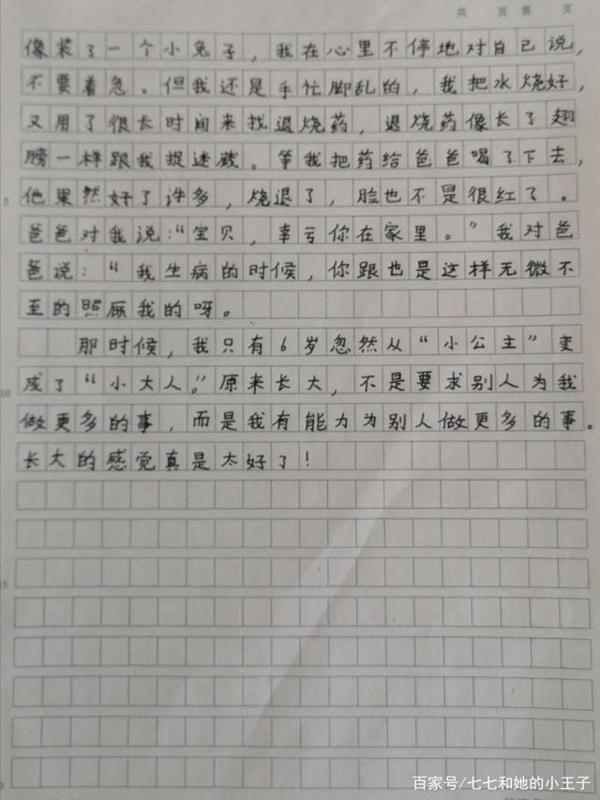 共 页 第 页
像装了一个小兔子，我在心里不停地对自己说，
不要着急。但我还是手忙脚乱的，我把水烧好，
又用了很长时间来找退烧药，退烧药像长了翅
膀一样跟我捉迷藏。等我把药给爸爸喝了下去，
5
他果然好了许多，烧退了，脸也不是很红了。
爸爸对我说：“宝贝，幸亏你在家里。”我对爸
爸说：“我生病的时候，你跟也是这样无微不
至的照顾我的呀。
那时候，我只有6岁忽然从“小公主”变
10
成了“小大人”。原来长大，不是要求别人为我
做更多的事，而是我有能力为别人做更多的事。
长大的感觉真是太好了！
15
百家号/七七和她的小王子